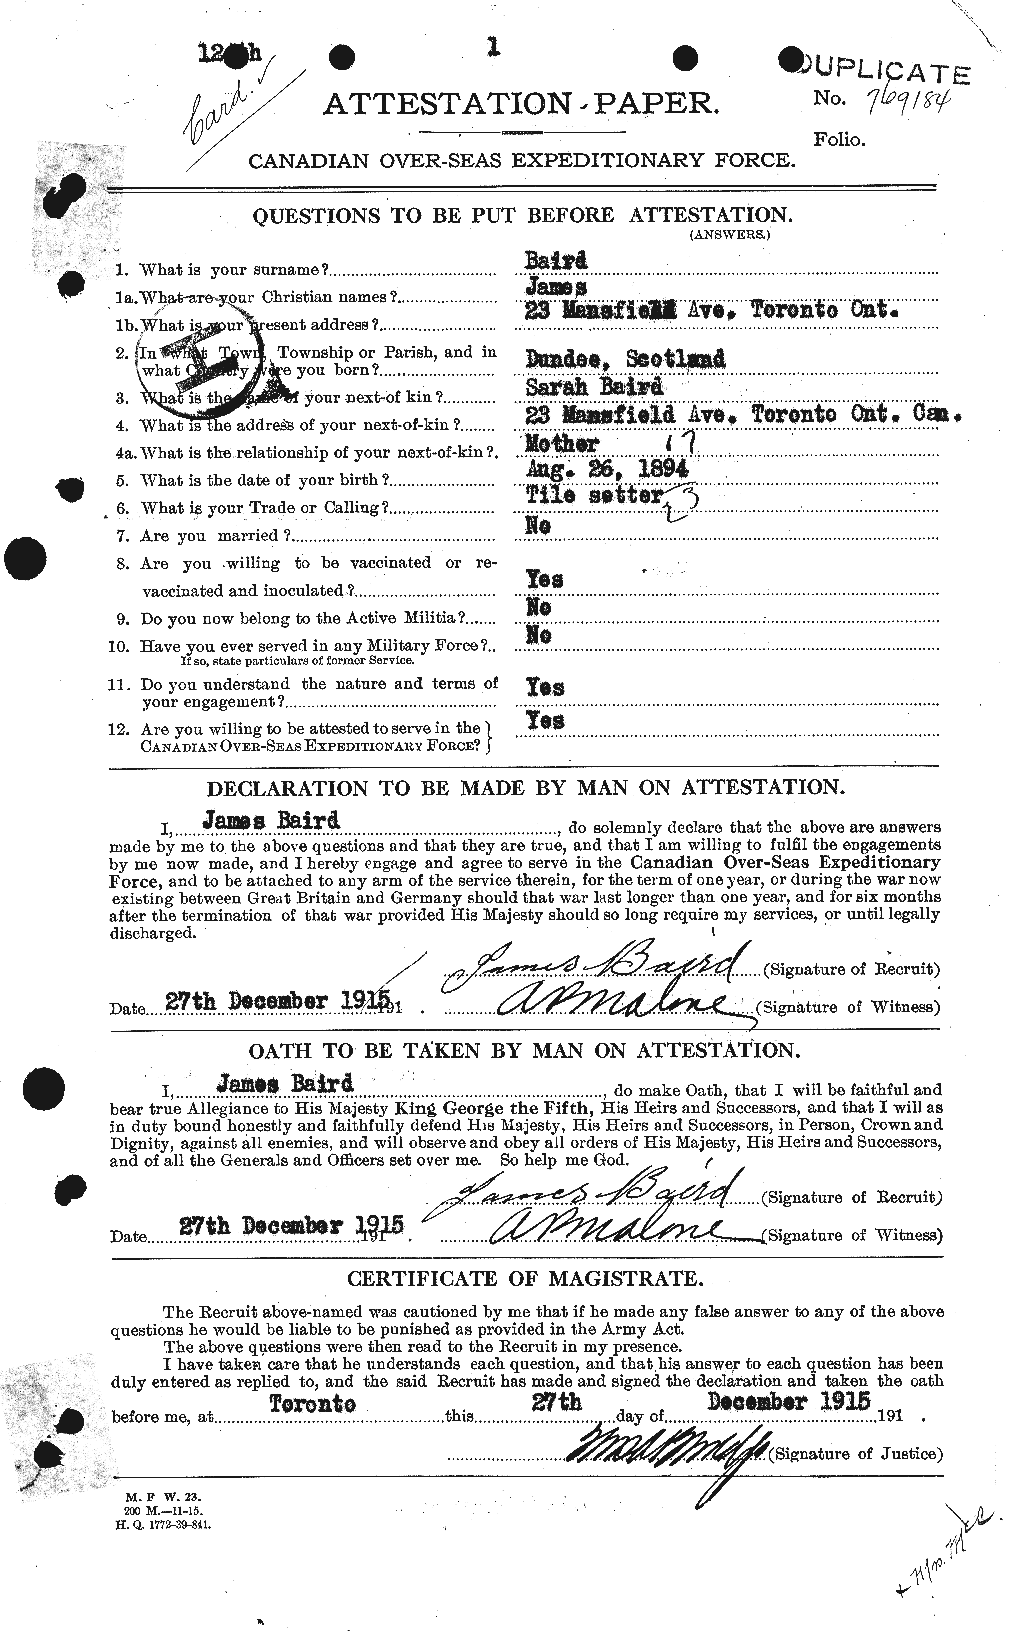 1
DUPLICATE
Card.
ATTESTATION-PAPER.
No. 769184
Folio.
CANADIAN OVER-SEAS EXPEDITIONARY FORCE.
QUESTIONS TO BE PUT BEFORE ATTESTATION.
(ANSWERS.)
1. What is your surname? Baird
1a. What are your Christian names? James
1b. What is your present address? 23 Mansfield Ave. Toronto Ont.
2. In what Town, Township or Parish, and in
what Country were you born? Dundee, Scotland
3. What is the name of your next-of kin? Sarah Baird
4. What is the address of your next-of-kin? 23 Mansfield Ave. Toronto Ont. Can.
4a. What is the relationship of your next-of-kin? Mother 17
5. What is the date of your birth? Aug. 26, 1894
6. What is your Trade or Calling? Tile setter 23
7. Are you married? No
8. Are you willing to be vaccinated or re-
vaccinated and inoculated? Yes
9. Do you now belong to the Active Militia? No
10. Have you ever served in any Military Force? No
If so, state particulars of former Service.
11. Do you understand the nature and terms of
your engagement? Yes
12. Are you willing to be attested to serve in the
CANADIAN OVER-SEAS EXPEDITIONARY FORCE? Yes
DECLARATION TO BE MADE BY MAN ON ATTESTATION.
I, James Baird, do solemnly declare that the above are answers
made by me to the above questions and that they are true, and that I am willing to fulfil the engagements
by me now made, and I hereby engage and agree to serve in the Canadian Over-Seas Expeditionary
Force, and to be attached to any arm of the service therein, for the term of one year, or during the war now
existing between Great Britain and Germany should that war last longer than one year, and for six months
after the termination of that war provided His Majesty should so long require my services, or until legally
discharged.
James Baird (Signature of Recruit)
Date 27th December 1915 191 . A P Malone (Signature of Witness)
OATH TO BE TAKEN BY MAN ON ATTESTATION.
I, James Baird, do make Oath, that I will be faithful and
bear true Allegiance to His Majesty King George the Fifth, His Heirs and Successors, and that I will as
in duty bound honestly and faithfully defend His Majesty, His Heirs and Successors, in Person, Crown and
Dignity, against all enemies, and will observe and obey all orders of His Majesty, His Heirs and Successors,
and of all the Generals and Officers set over me. So help me God.
James Baird (Signature of Recruit)
Date 27th December 1915 191 . A P Malone (Signature of Witness)
CERTIFICATE OF MAGISTRATE.
The Recruit above-named was cautioned by me that if he made any false answer to any of the above
questions he would be liable to be punished as provided in the Army Act.
The above questions were then read to the Recruit in my presence.
I have taken care that he understands each question, and that his answer to each question has been
duly entered as replied to, and the said Recruit has made and signed the declaration and taken the oath
before me, at Toronto this 27th day of December 1915 191 .
(Signature of Justice)
M. F W. 23.
200 M.—11-15.
H. Q. 1772-39-841.